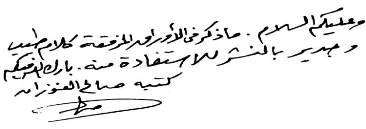 وعليكم السلام. ما ذكر في الأوراق المرفقة كلام طيب
وجدير بالنشر للاستفادة منه. بارك الله فيكم
كتبه صالح الفوزان